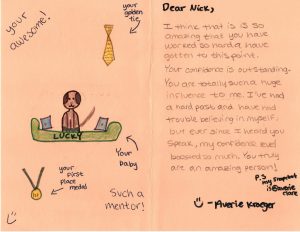 your awesome!
your golden tie
LUCKY
Your baby
your first place medal
Such a mentor!
Dear Nick,
I think that is is so
amazing that you have
worked so hard & have
gotten to this point.
Your confidence is outstanding.
You are totally such a huge
influence to me. I've had
a hard past and have had
trouble believing in myself,
but ever since I heard you
speak, my confidence level
boosted so much. You truly
are an amazing person!
P.S
my snapchat
is
- Averie Kroeger